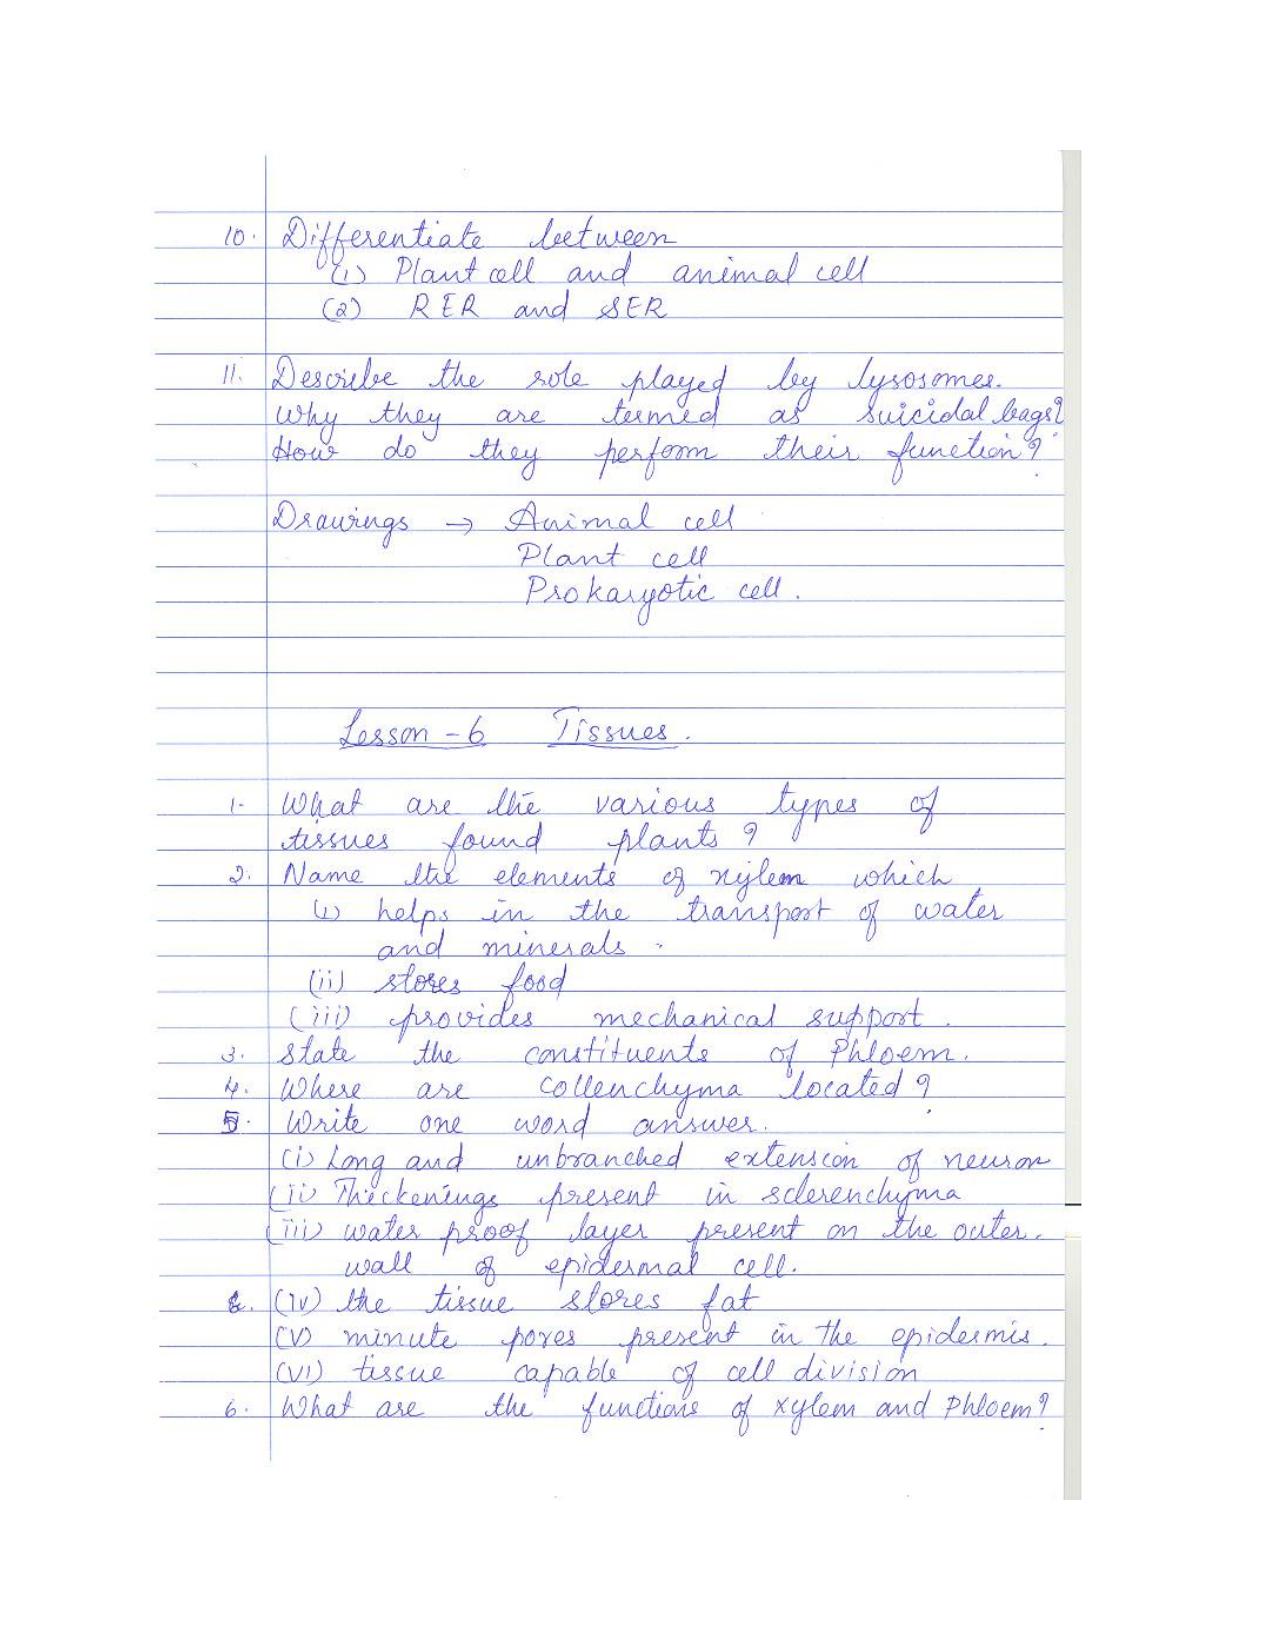 10. Differentiate between
(1) Plant cell and animal cell
(2) RER and SER
11. Describe the role played by lysosomes.
Why they are termed as suicidal bags?
How do they perform their function?
Drawings → Animal cell
Plant cell
Prokaryotic cell.
Lesson - 6 Tissues.
1. What are the various types of
tissues found plants?
2. Name the elements of xylem which
(i) helps in the transport of water
and minerals.
(ii) stores food
(iii) provides mechanical support.
3. State the constituents of Phloem.
4. Where are collenchyma located?
5. Write one word answer.
(i) Long and unbranched extension of neuron
(ii) Thickenings present in sclerenchyma
(iii) water proof layer present on the outer.
wall of epidermal cell.
(iv) the tissue stores fat
(v) minute pores present in the epidermis.
(vi) tissue capable of cell division
6. What are the functions of xylem and Phloem?